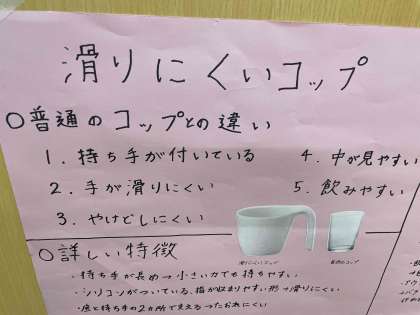 滑りにくいコップ
○普通のコップとの違い
1. 持ち手が付いている
2. 手が滑りにくい
3. やけどしにくい
4. 中が見やすい
5. 飲みやすい
滑りにくいコップ
普通のコップ
○詳しい特徴
・持ち手が長めつ小さい力でも持ちやすい
・シリコンがついている、指が収まりやすい形→滑りにくい
・底と持ち手の2ヵ所で支えるつたおれにくい